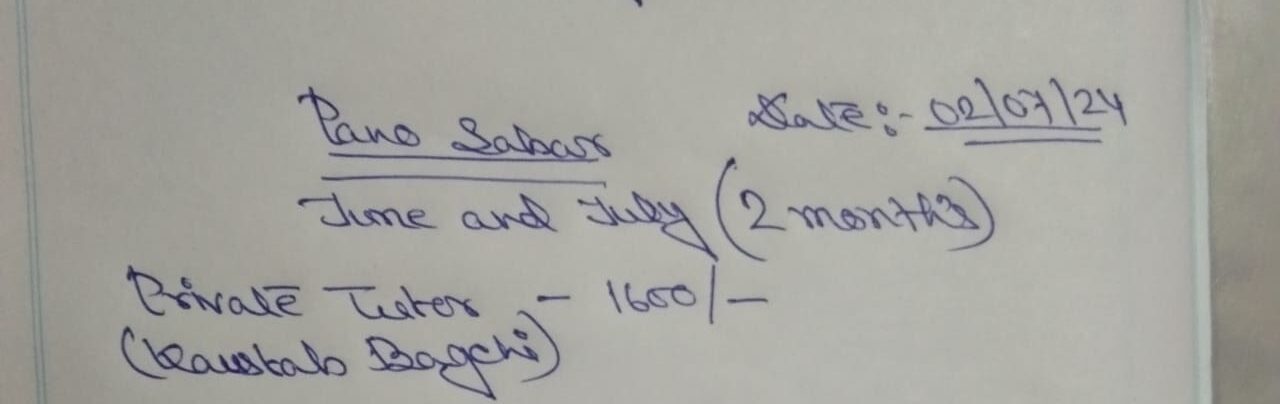 Pano Sabar Date:- 02/07/24
June and July (2 months)
Private Tutor - 1600/-
(Kaustab Bagchi)